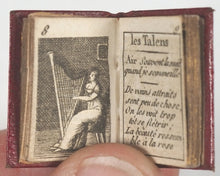 8
les Talens
Air Souvent la nuit
quand je sommeille
De vains attraits
sont peu de chose
On les voit trop
tôt se flétrir
La beauté ressem
ble à la rose